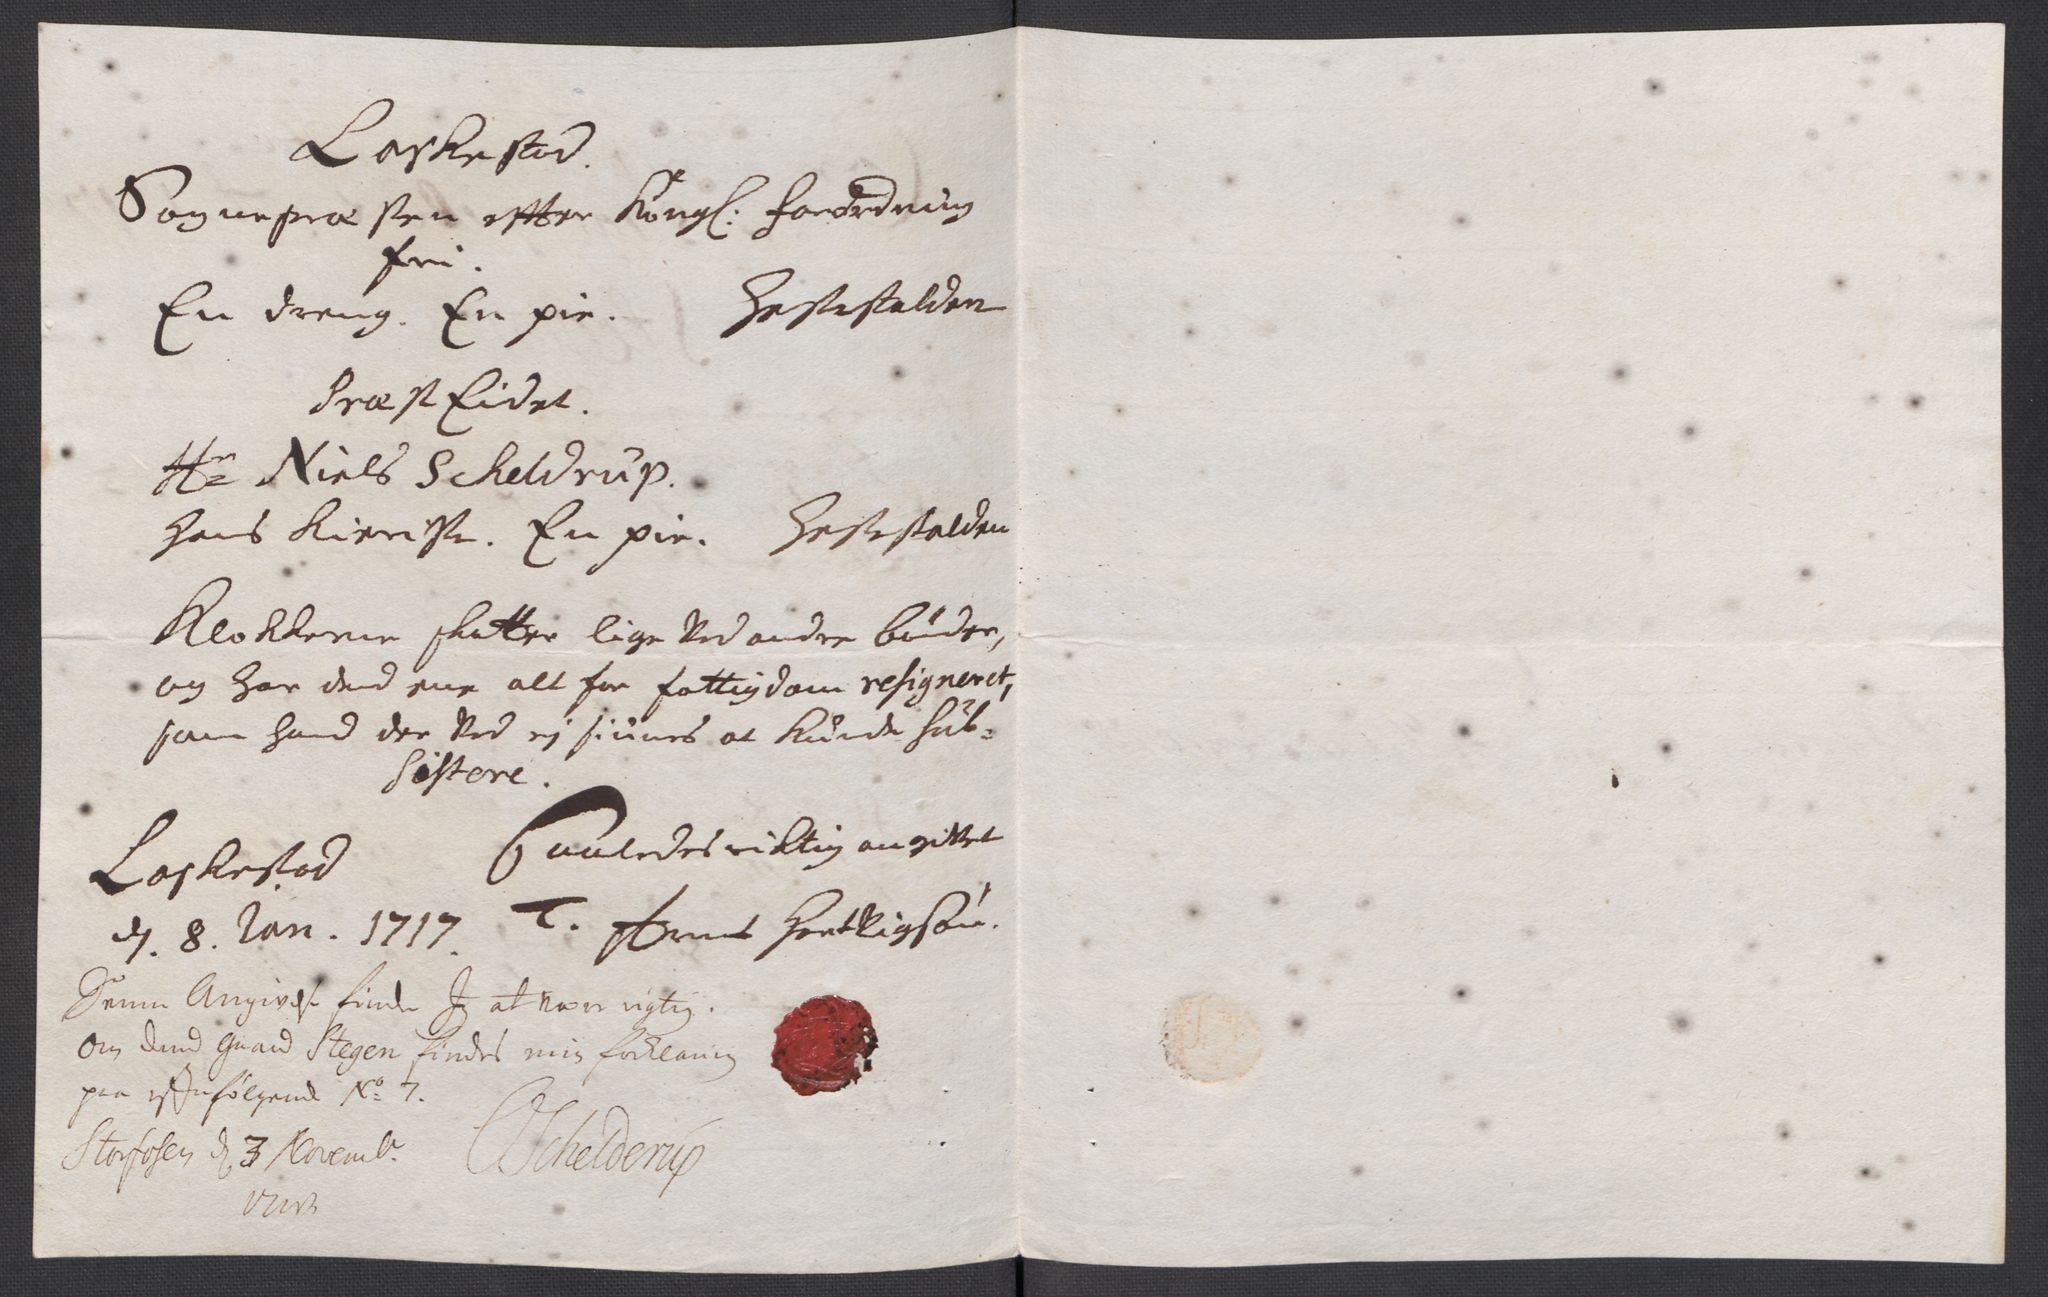 Laskestad.
Sognepræsten effter Kongl: forordning
fri.
En dreng. En pie. Hestestalden
Præst Eidet.
Hr Niels Scheldrup.
Hans Kieriste. En pie. Hestestalden
Klokkerne skatter lige ved andre bönder,
og har dend ene alt for fattigdom resigneret,
som hand der ved ej siunes at kunde sub=
sistere.
Laskestad Saaledes riktig angivet
d. 8. Jan. 1717. T. Hartvigsön.
Denne Angivelse finder Jeg at være rigtig.
om dend gaard Stegen findes min forklaring
paa efterfølgende No 7.
Storfosen d 3 Novemb.
Schelderup